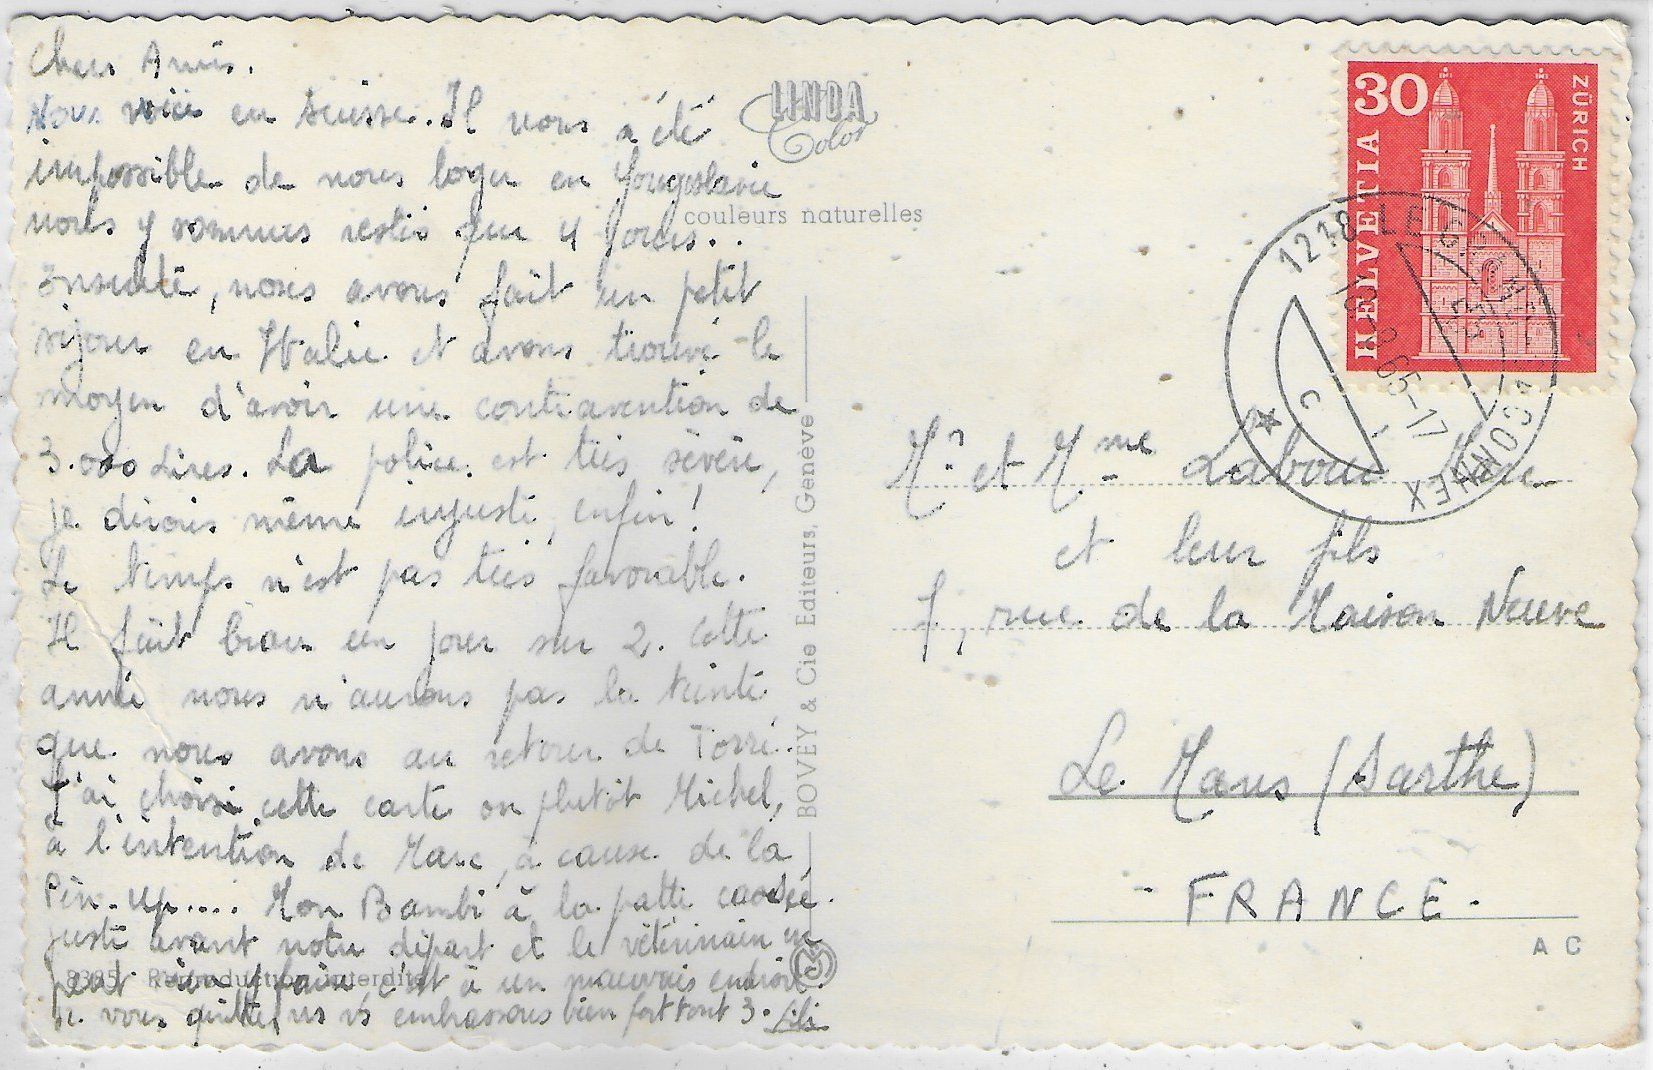 Chers Amis.
Nous voici en Suisse. Il nous a été
impossible de nous loger en Yougoslavie
nous y sommes restés que 4 jours..
ensuite, nous avons fait un petit
séjour en Italie et avons trouvé le
moyen d'avoir une contravention de
3.000 Lires. La police est très sévère,
je dirais même injuste, enfin!
Le temps n'est pas très favorable.
Il fait beau un jour sur 2. Cette
année nous n'aurons pas la teinte
que nous avons au retour de Torre.
J'ai choisi cette carte ou plutôt Michel,
à l'intention de Marc, à cause de la
Pin-up.... Mon Bambi à la patte cassée
juste avant notre départ et le vétérinaire ne
peut rien y faire c'est à un mauvais endroit
Je vous quitte, ns vs embrassons bien fort tout 3. Lili
LINDA
Color
couleurs naturelles
BOVEY & Cie Editeurs, Genève
8395 Reproduction interdite
30
HELVETIA
ZÜRICH
1218 LE GRAND-SACONNEX
65-17
C
Mr et Mme Marc
et leur fils
7, rue de la Maison Neuve
Le Mans (Sarthe)
- FRANCE -
A C